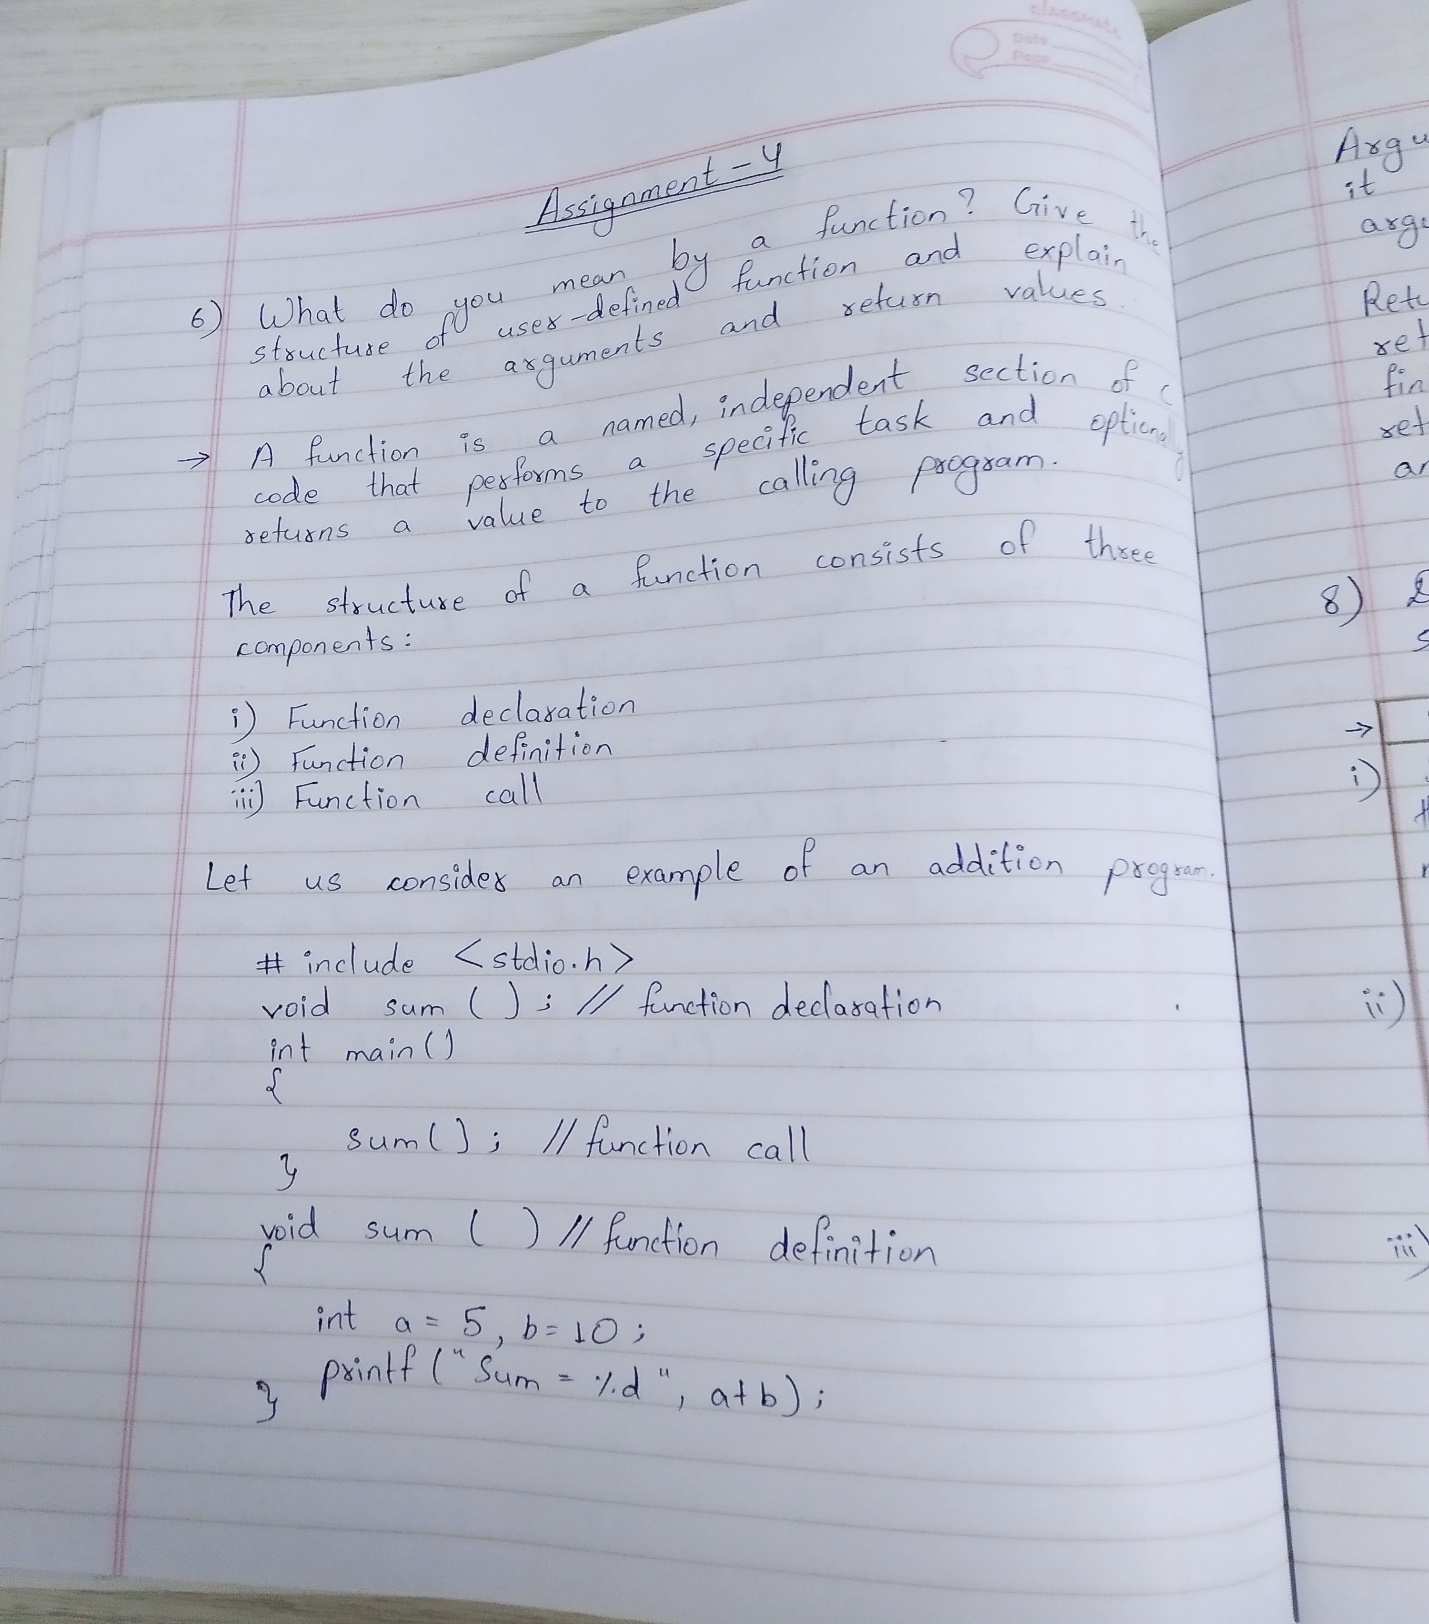 classmate
Date
Page
Assignment - 4
6) What do you mean by a function? Give the
structure of user-defined function and explain
about the arguments and return values.
→ A function is a named, independent section of C
code that performs a specific task and optionally
returns a value to the calling program.
The structure of a function consists of three
components:
i) Function declaration
ii) Function definition
iii) Function call
Let us consider an example of an addition program.
# include <stdio.h>
void sum ( ) ; // function declaration
int main()
{
sum( ) ; // function call
}
void sum ( ) // function definition
{
int a = 5, b = 10 ;
printf ("Sum = %d", a+b) ;
}
Argu
it
argu
Retu
ret
fin
ret
an
8)
→
i)
ii)
iii)